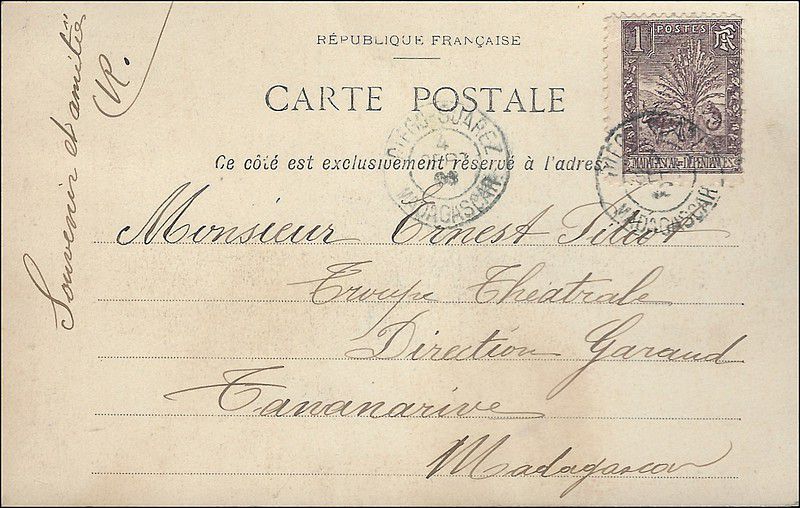 RÉPUBLIQUE FRANÇAISE
CARTE POSTALE
Ce côté est exclusivement réservé à l'adres
1 POSTES RF
MADAGASCAR-DÉPENDANCES
SUAREZ
4
MADAGASCAR
MADAGASCAR
Souvenir d'amitié
Monsieur Ernest
Troupe Theatrale
Direction Garaud
Tananarive
Madagascar